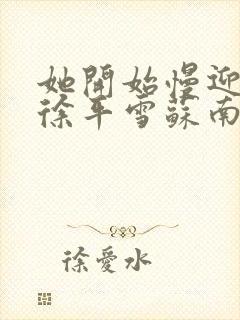 她開始慢迎
徐平雪蘇南
徐愛水